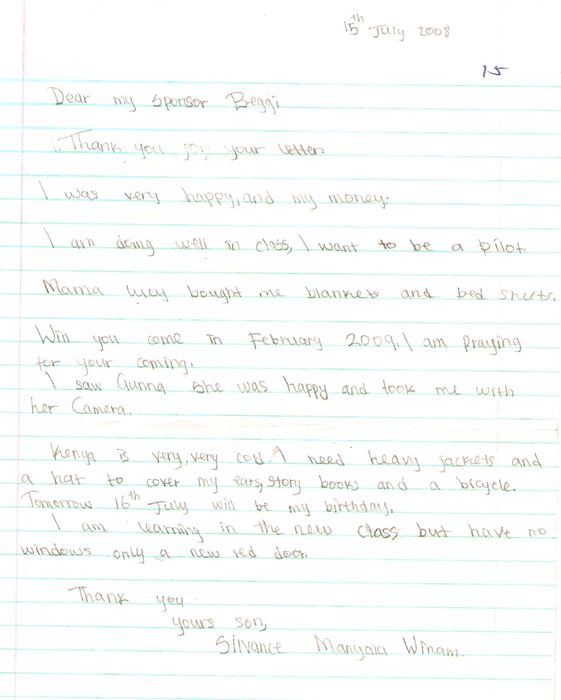 15th July 2008
15
Dear my sponsor Beggi
Thank you for your letter.
I was very happy, and my money.
I am doing well in class, I want to be a pilot
Mama Lucy bought me blankets and bed sheets.
Win you come in February 2009. I am praying
for your coming.
I saw Gunna she was happy and took me with
her Camera.
Kenya is very, very cold. I need heavy jackets and
a hat to cover my ears, story books and a bicycle.
Tomorrow 16th July will be my birthday.
I am learning in the new class but have no
windows only a new red door.
Thank you
yours son,
Silvance Manyala Winam.